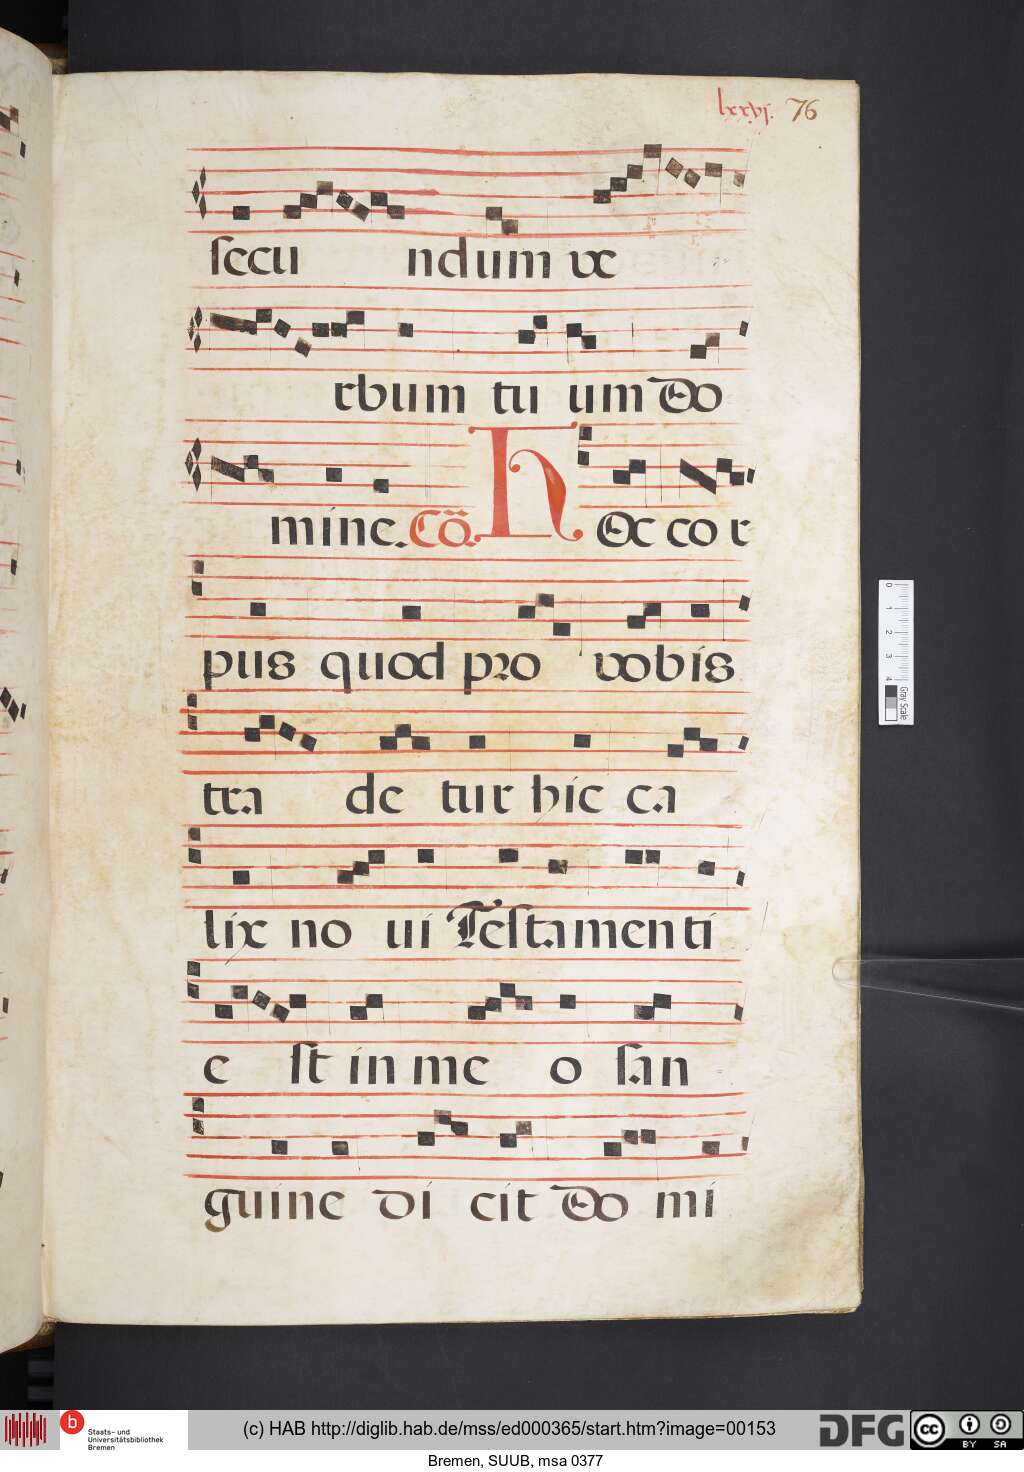 lxxvj. 76
secu ndum ve
rbum tu um Do
mine. Cō. H Oc cor
pus quod pro vobis
tra de tur hic ca
lix no ui Testamenti
e st in me o san
guine di cit Do mi
0 1 2 3 4
Gray Scale
b Staats- und
Universitätsbibliothek
Bremen
(c) HAB http://diglib.hab.de/mss/ed000365/start.htm?image=00153
DFG
cc BY SA
Bremen, SUUB, msa 0377